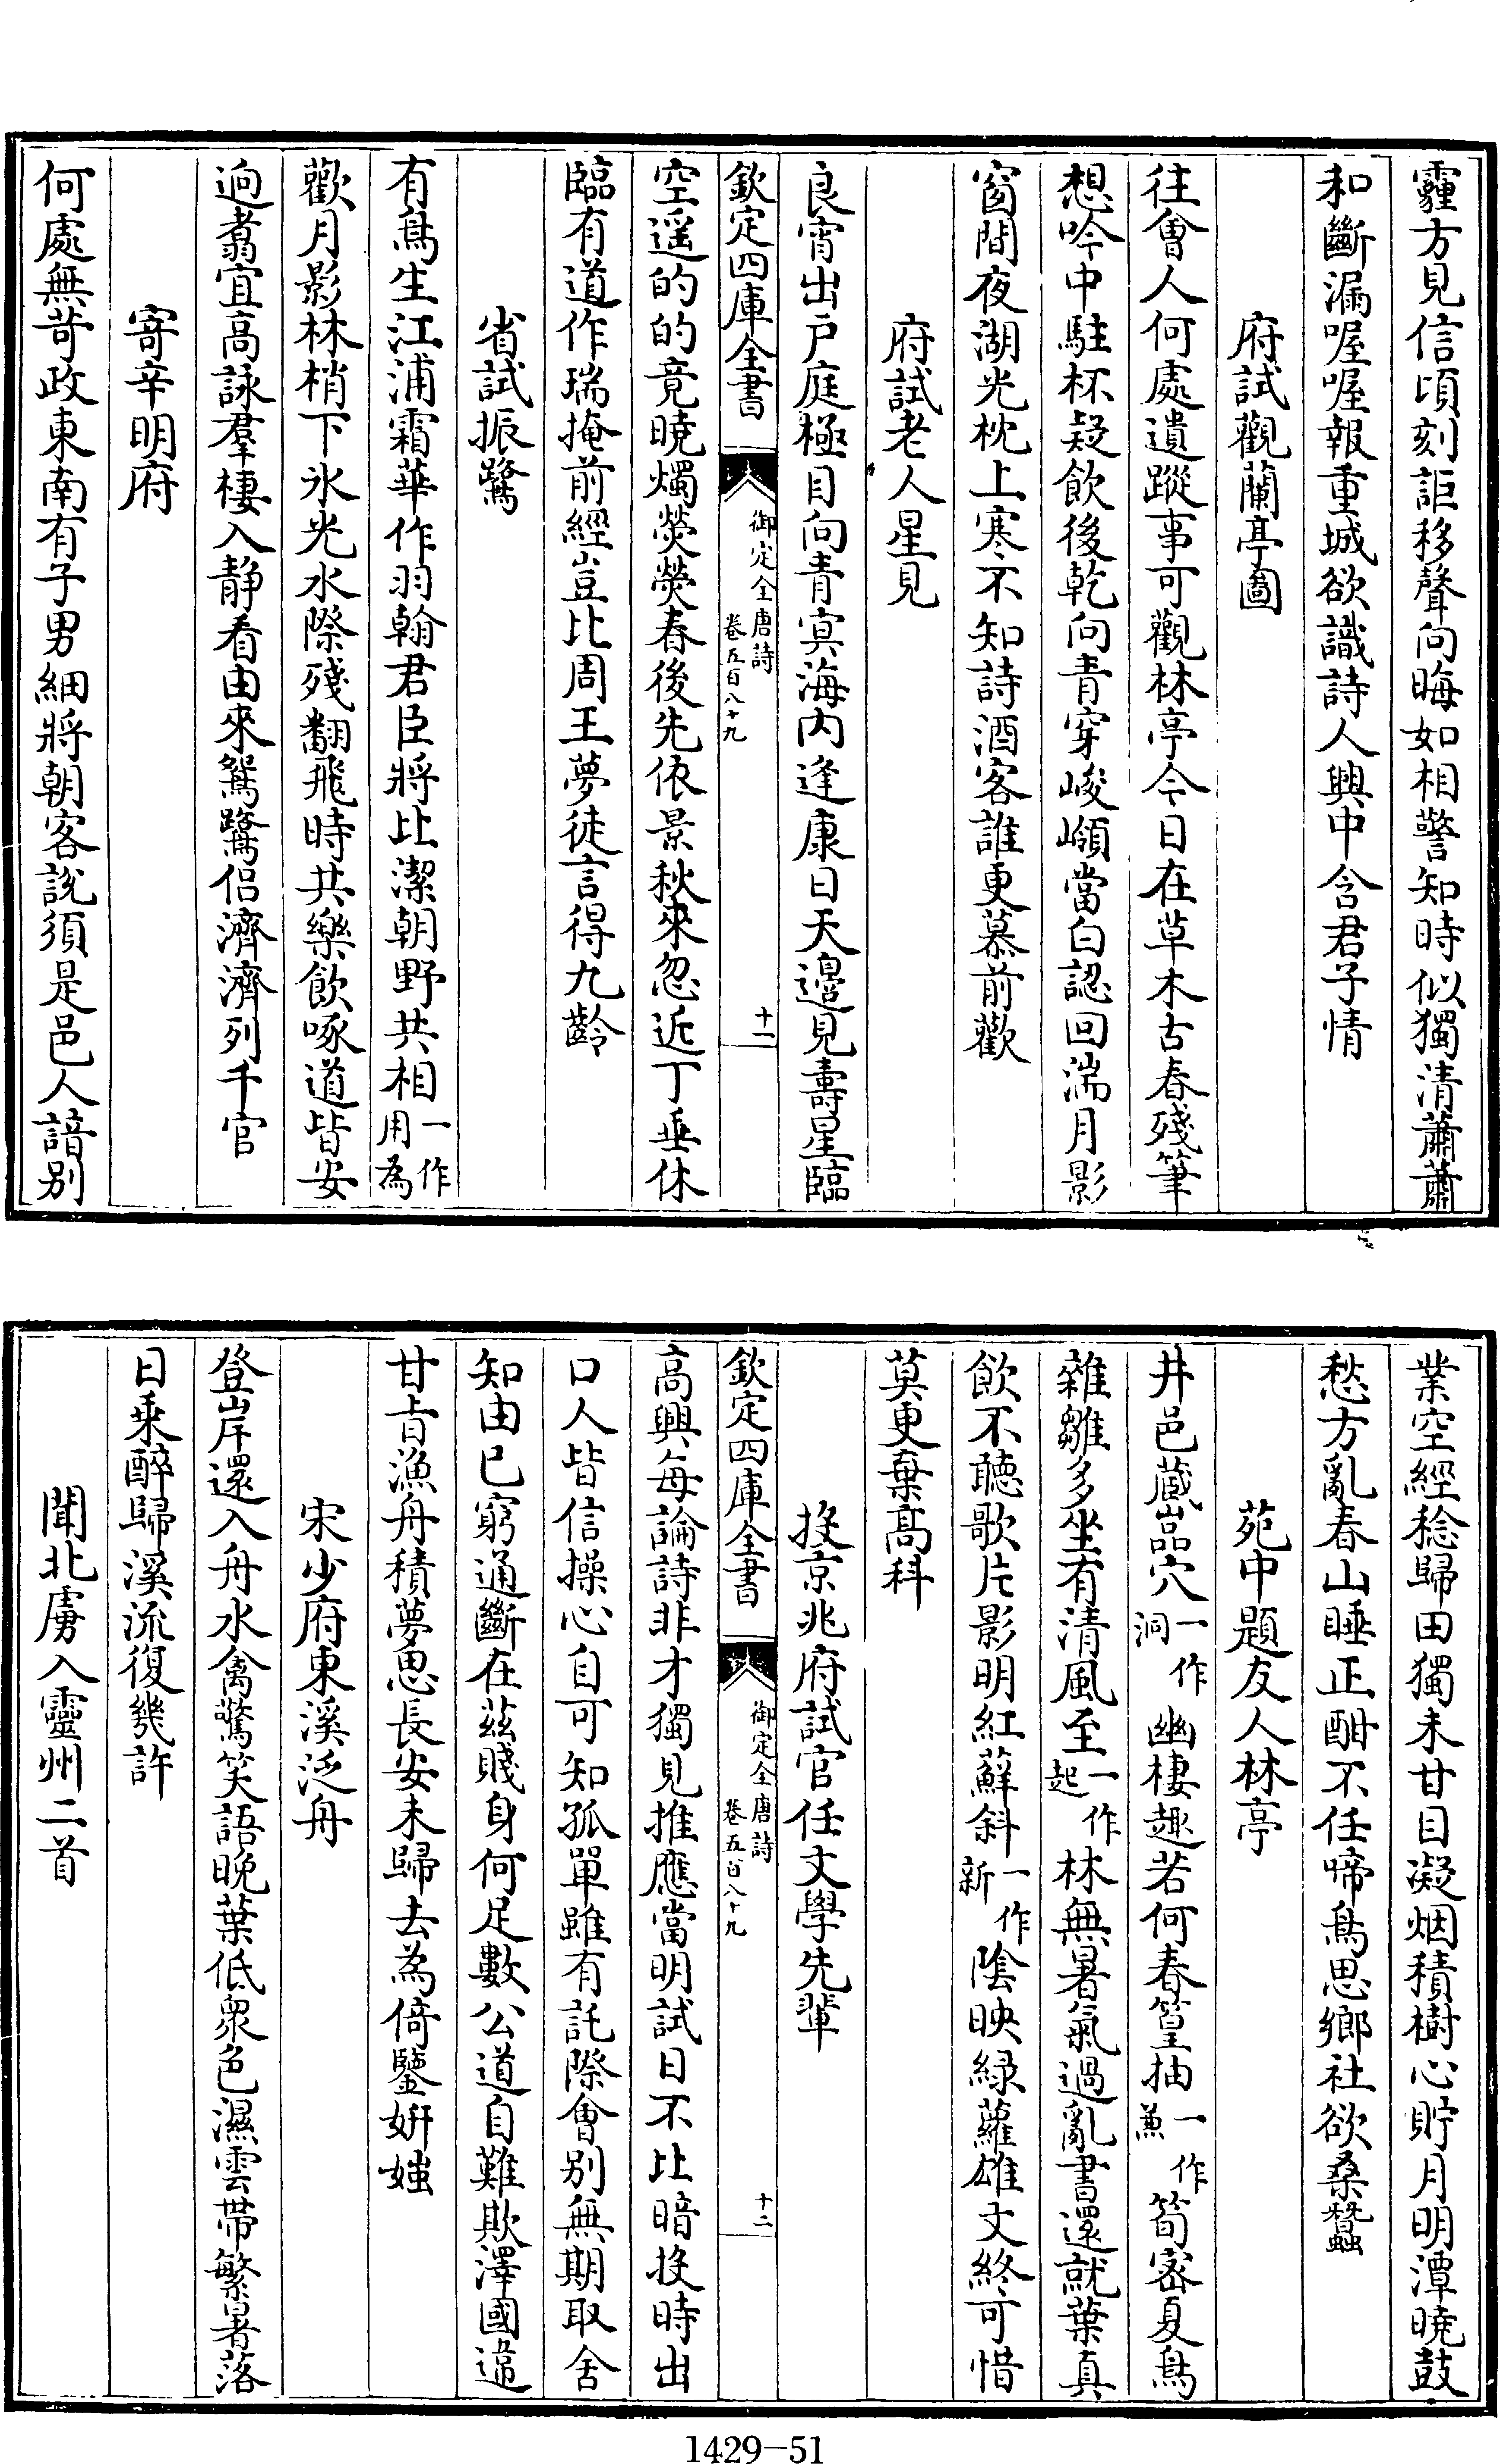 霾方見信頃刻詎移聲向晦如相警知時似獨清蕭蕭
和斷漏喔喔報重城欲識詩人興中含君子情
府試觀蘭亭圖
往會人何處遺蹤事可觀林亭今日在草木古春殘筆
想吟中駐杯疑飲後乾向青穿峻嶺當白認回湍月影
窗間夜湖光枕上寒不知詩酒客誰更慕前歡
府試老人星見
良宵出戶庭極目向青冥海內逢康日天邊見壽星臨
欽定四庫全書
御定全唐詩
卷五百八十九
十一
空遥的的竟曉燭熒熒春後先依景秋來忽近丁垂休
臨有道作瑞掩前經豈比周王夢徒言得九齡
省試振鷺
有鳥生江浦霜華作羽翰君臣將比潔朝野共相一作用為
歡月影林梢下氷光水際殘翻飛時共樂飲啄道皆安
逈翥宜高詠羣棲入静看由來鴛鷺侶濟濟列千官
寄辛明府
何處無苛政東南有子男細將朝客說須是邑人諳別
業空經稔歸田獨未甘目凝烟積樹心貯月明潭曉鼓
愁方亂春山睡正酣不任啼鳥思鄉社欲桑蠶
苑中題友人林亭
井邑藏嵓穴一作洞幽棲趣若何春篁抽一作兼筍密夏鳥
雜雛多坐有清風至一作起林無暑氣過亂書還就葉真
飲不聽歌片影明紅蘚斜一作新陰映緑蘿雄文終可惜
莫更棄高科
投京兆府試官任文學先輩
欽定四庫全書
御定全唐詩
卷五百八十九
十二
高興每論詩非才獨見推應當明試日不比暗投時出
口人皆信操心自可知孤單雖有託際會别無期取舍
知由已窮通斷在茲賤身何足數公道自難欺澤國違
甘旨漁舟積夢思長安未歸去為倚鑒妍媸
宋少府東溪泛舟
登岸還入舟水禽驚笑語晚葉低衆色濕雲帶繁暑落
日乗醉歸溪流復幾許
聞北虜入靈州二首
1429-51